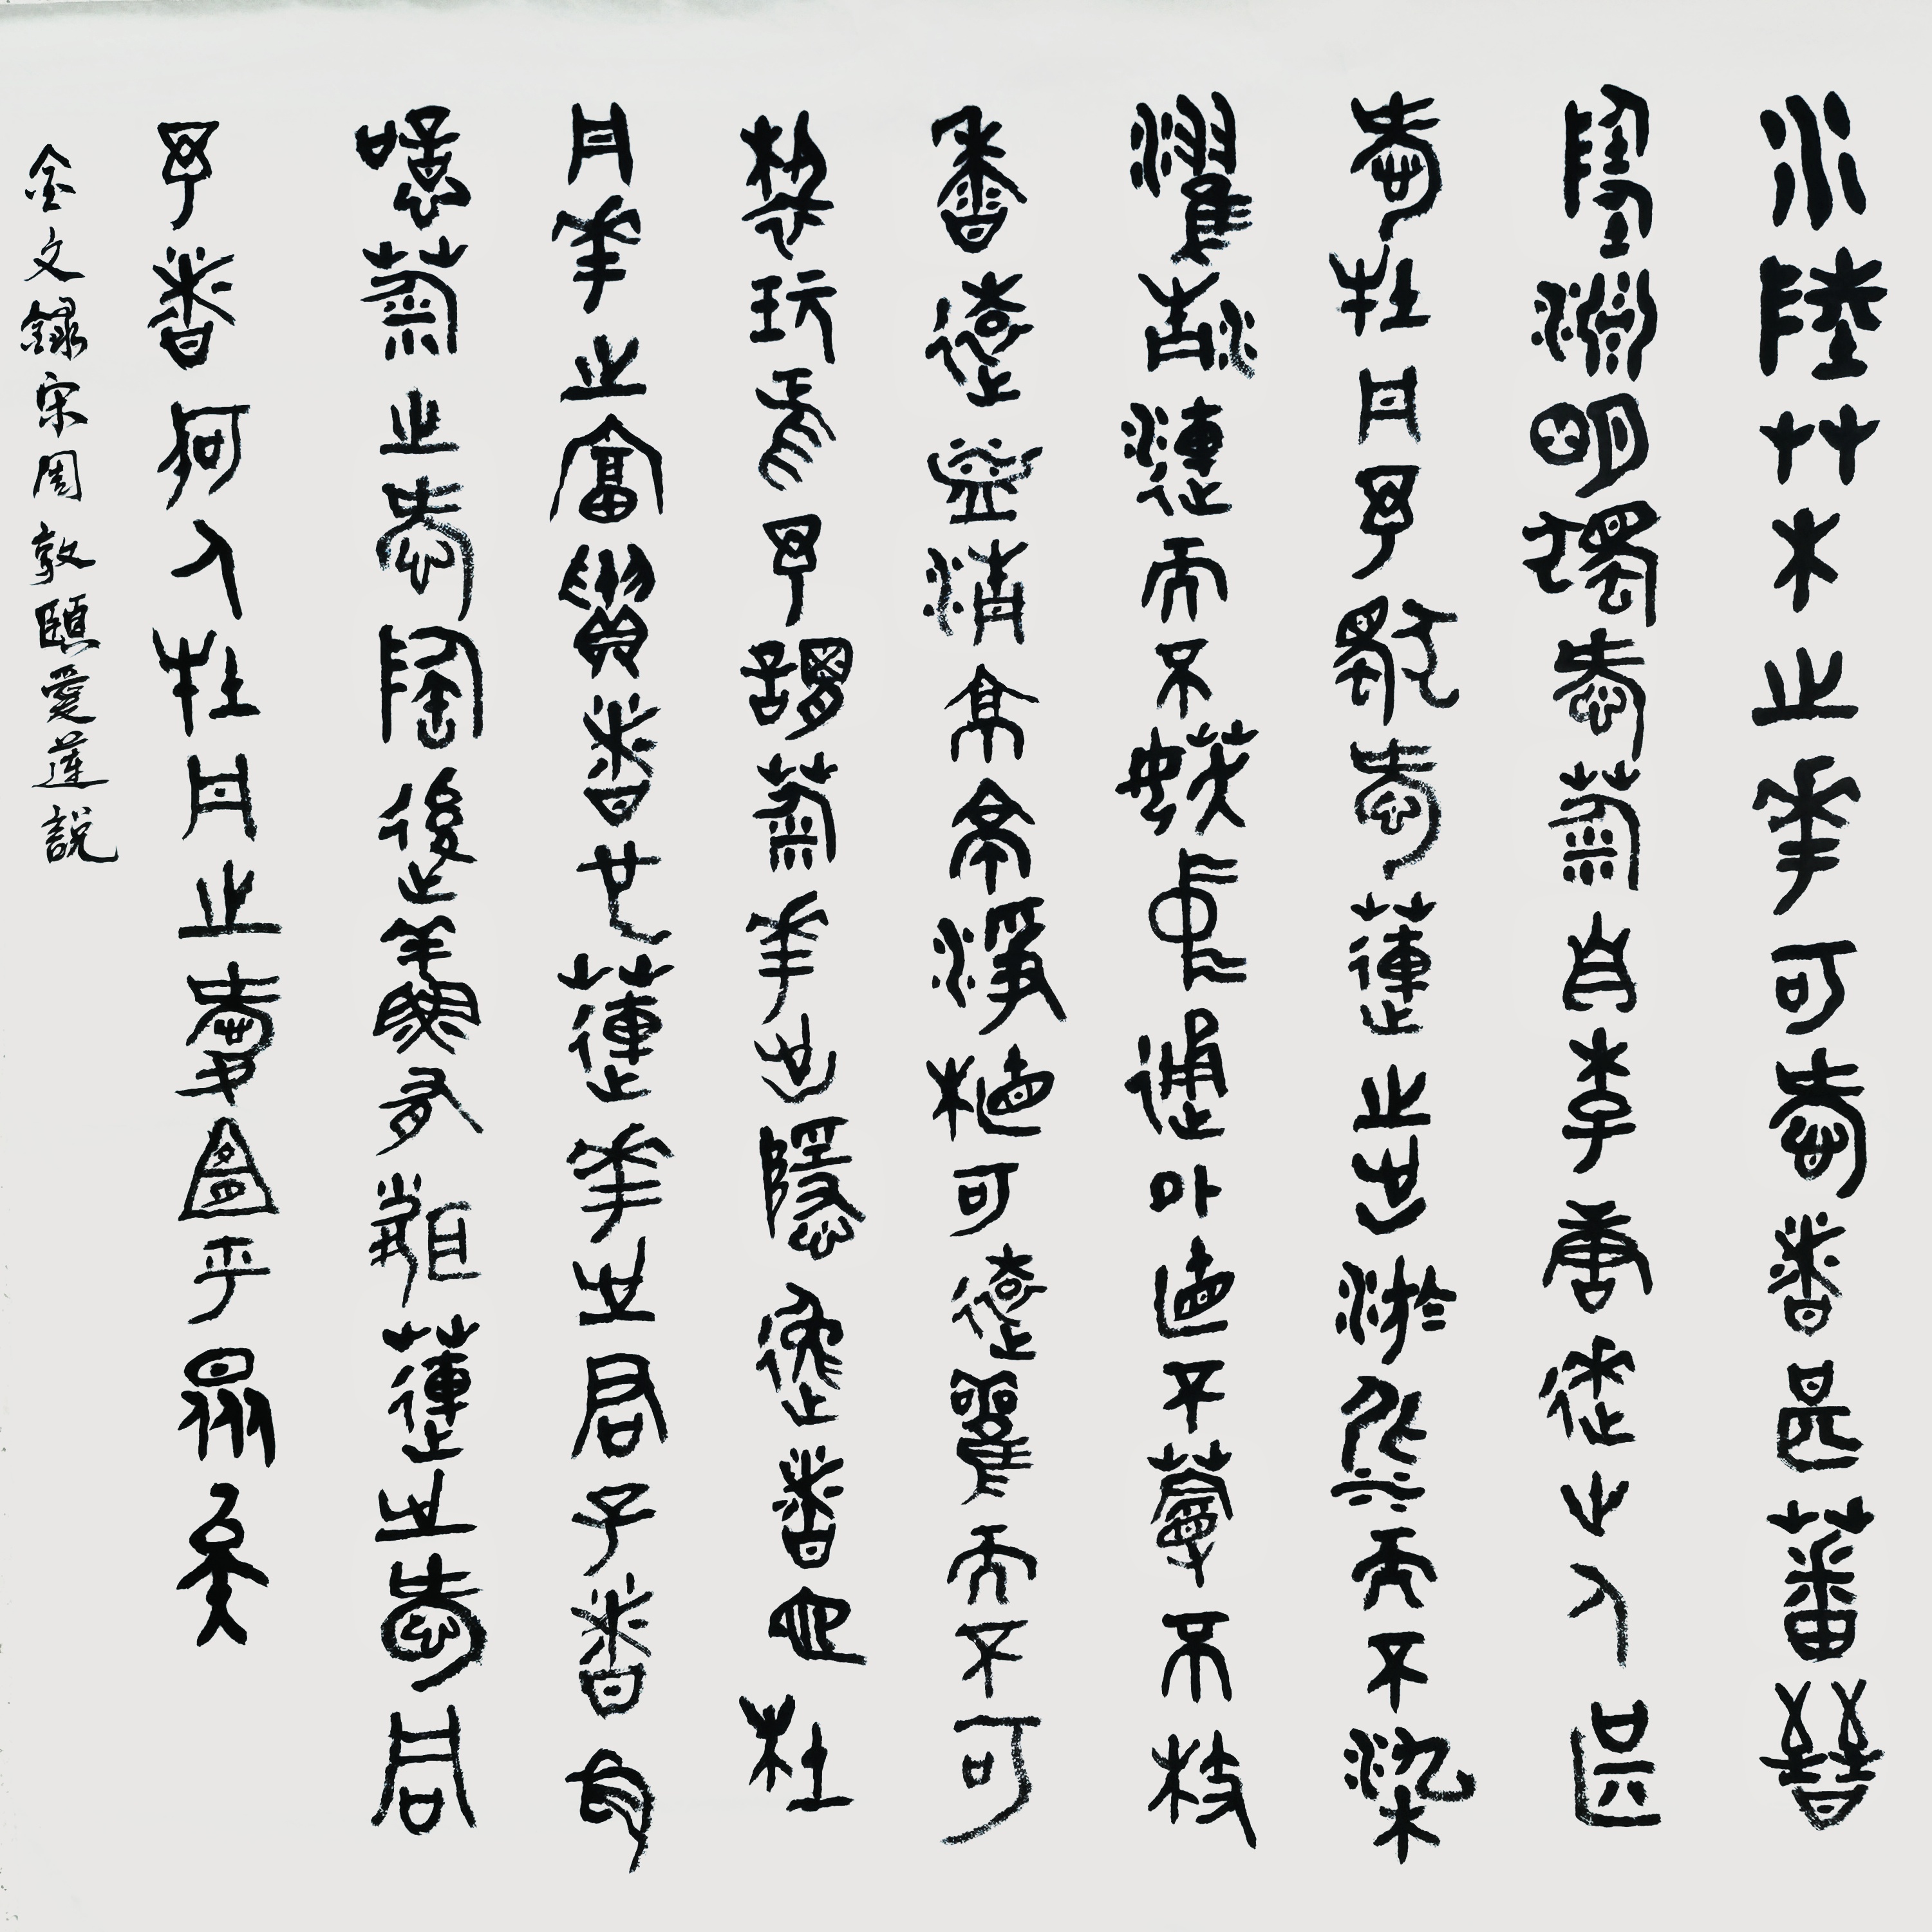 水陸艸木之華可愛者甚蕃晉
陶淵明獨愛菊自李唐來世人甚
愛牡丹予獨愛蓮之出淤泥而不染
濯清漣而不妖中通外直不蔓不枝
香遠益清亭亭淨植可遠觀而不可
褻玩焉予謂菊華之隱逸者也牡
丹華之富貴者也蓮華之君子者也
噫菊之愛陶後鮮有聞蓮之愛同
予者何人牡丹之愛宜乎眾矣
金文錄宋周敦頤愛蓮說